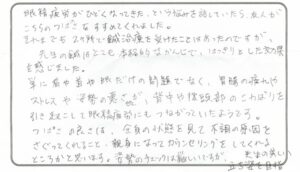 眼精疲労がひどくなってきた、という悩みを話していたら、友人が
こちらのつばきをすすめてくれました。
それまでもスケ残って鍼治療を受けたことはあったのですが、
先生の鍼はとても本格的なかんじで、はっきりとした効果
を感じました。
単に肩や首や眼だけの問題でなく、胃腸の疲れや
ストレスや姿勢の悪さが、背中や後頭部のこわばりを
引き起こして眼精疲労にもつながっていたようです。
つばきの良さは、全身の状態を見て不調の原因を
さぐってくれること、親身になってカウンセリングをしてくれる
ところかと思います。姿勢のチェックは厳しいですが、先生の美しい
立ち姿を目指